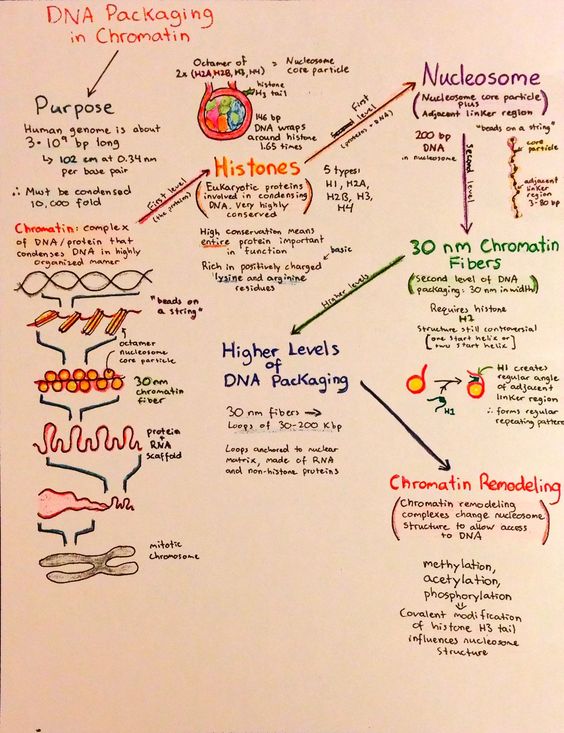 DNA Packaging
in Chromatin
Purpose
Human genome is about
3·10⁹ bp long
↳ 102 cm at 0.34 nm
per base pair
∴ Must be condensed
10,000 fold
Chromatin: complex
of DNA/protein that
condenses DNA in highly
organized manner
"beads on
a string"
octamer
nucleosome
core particle
30nm
chromatin
fiber
protein
+
RNA
scaffold
mitotic
chromosome
First level
(the proteins)
Octamer of
2x (H2A, H2B, H3, H4)
= Nucleosome
core particle
histone
H3 tail
146 bp
DNA wraps
around histone
1.65 times
Histones
(Eukaryotic proteins
involved in condensing
DNA. Very highly
conserved)
5 types:
H1, H2A,
H2B, H3,
H4
High conservation means
entire protein important
in function
basic
Rich in positively charged
lysine and arginine
residues
First
Second level
(proteins + DNA)
Nucleosome
(Nucleosome core particle
plus
Adjacent linker region)
200 bp
DNA
in nucleosome
second level
"beads on a string"
core
particle
adjacent
linker
region
3-80 bp
30 nm Chromatin
Fibers
(second level of DNA
packaging: 30 nm in width)
Requires histone
H1
Structure still controversial
[one start helix or
two start helix]
H1
H1 creates
regular angle
of adjacent
linker region
∴ forms regular
repeating pattern
Higher levels
Higher Levels
of
DNA Packaging
30 nm fibers →
Loops of 30-200 Kbp
Loops anchored to nuclear
matrix, made of RNA
and non-histone proteins
Chromatin Remodeling
(Chromatin remodeling
complexes change nucleosome
structure to allow access
to DNA)
methylation,
acetylation,
phosphorylation
⇓
Covalent modification
of histone H3 tail
influences nucleosome
structure